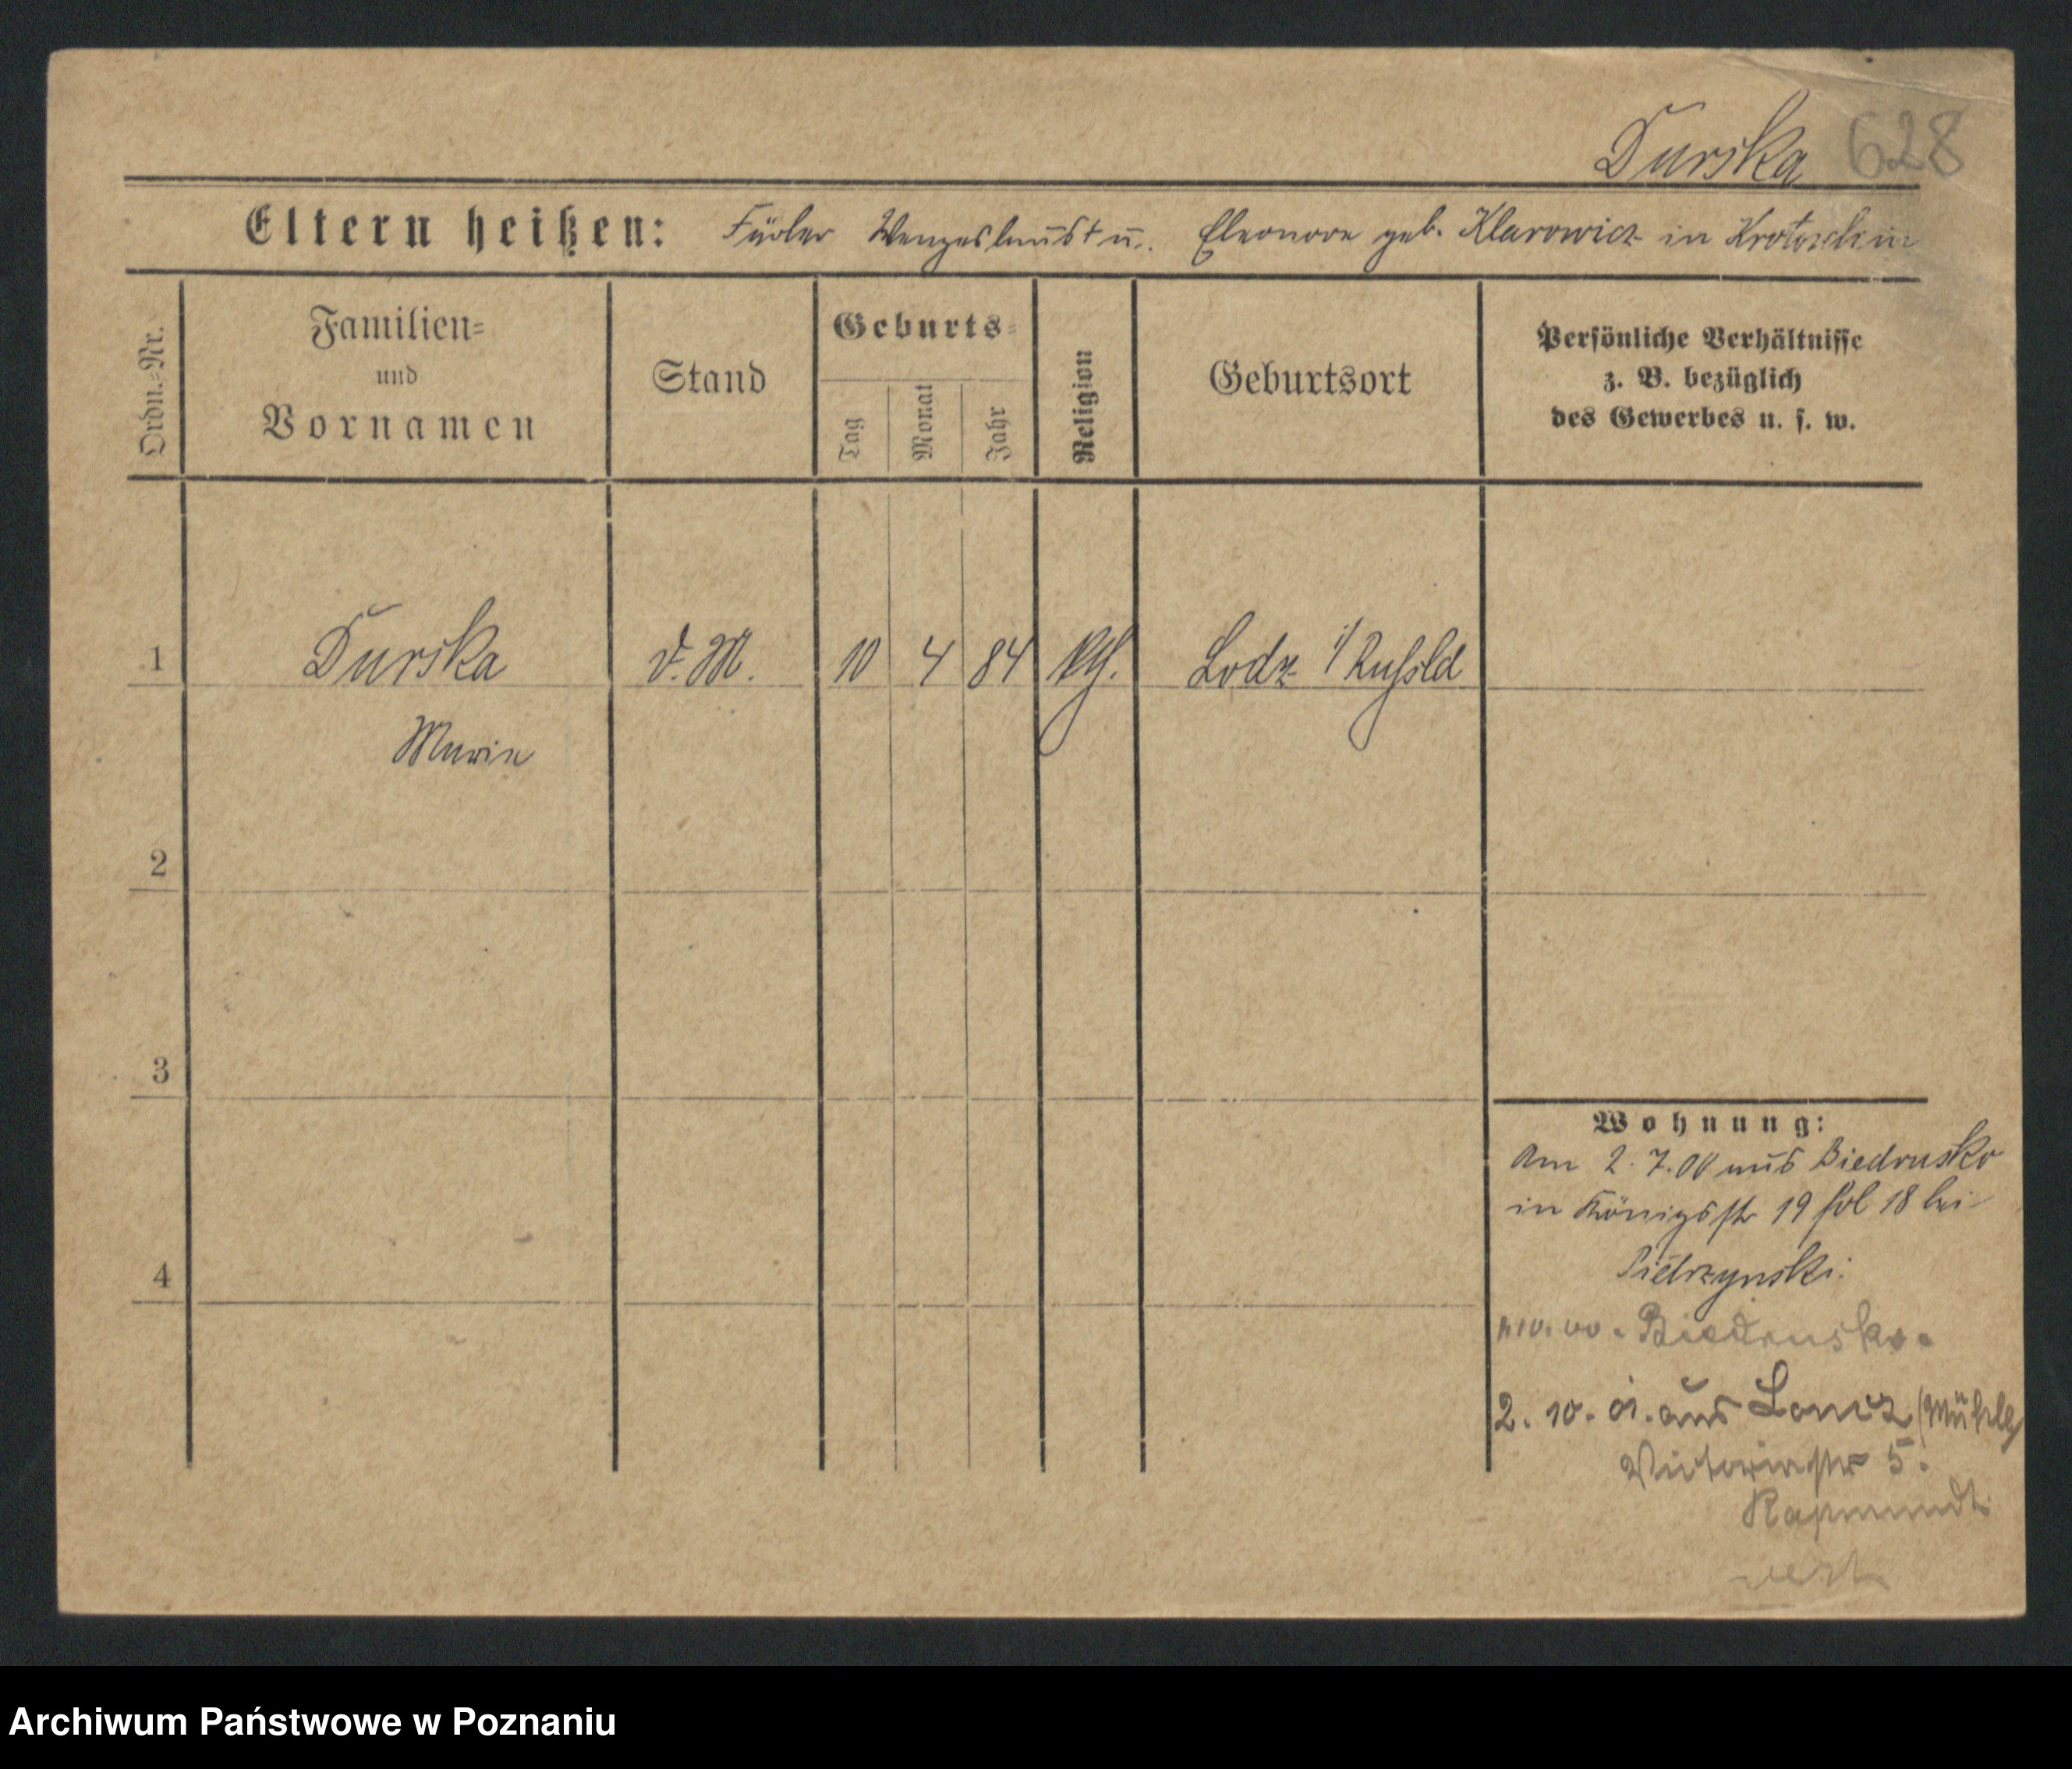 Durska 628
Eltern heißen: Färber Wenzeslaus † u. Eleonore geb. Klarowicz in Krotoschin
Ordn.=Nr.
Familien=
und
Vornamen
Stand
Geburts=
Tag
Monat
Jahr
Religion
Geburtsort
Persönliche Verhältnisse
z. B. bezüglich
des Gewerbes u. s. w.
1 Durska d. M. 10 4 84 kth. Lodz i/ Rußld
Marie
2
3
4
Wohnung:
Am 2.7.00 aus Biedrusko
in Königsstr 19 fol 18 bei
Pietrzynski.
Biedrusko.
2. 10. 01. aus (Mühle)
Victoriastr 5.
Rapmundt
Archiwum Państwowe w Poznaniu